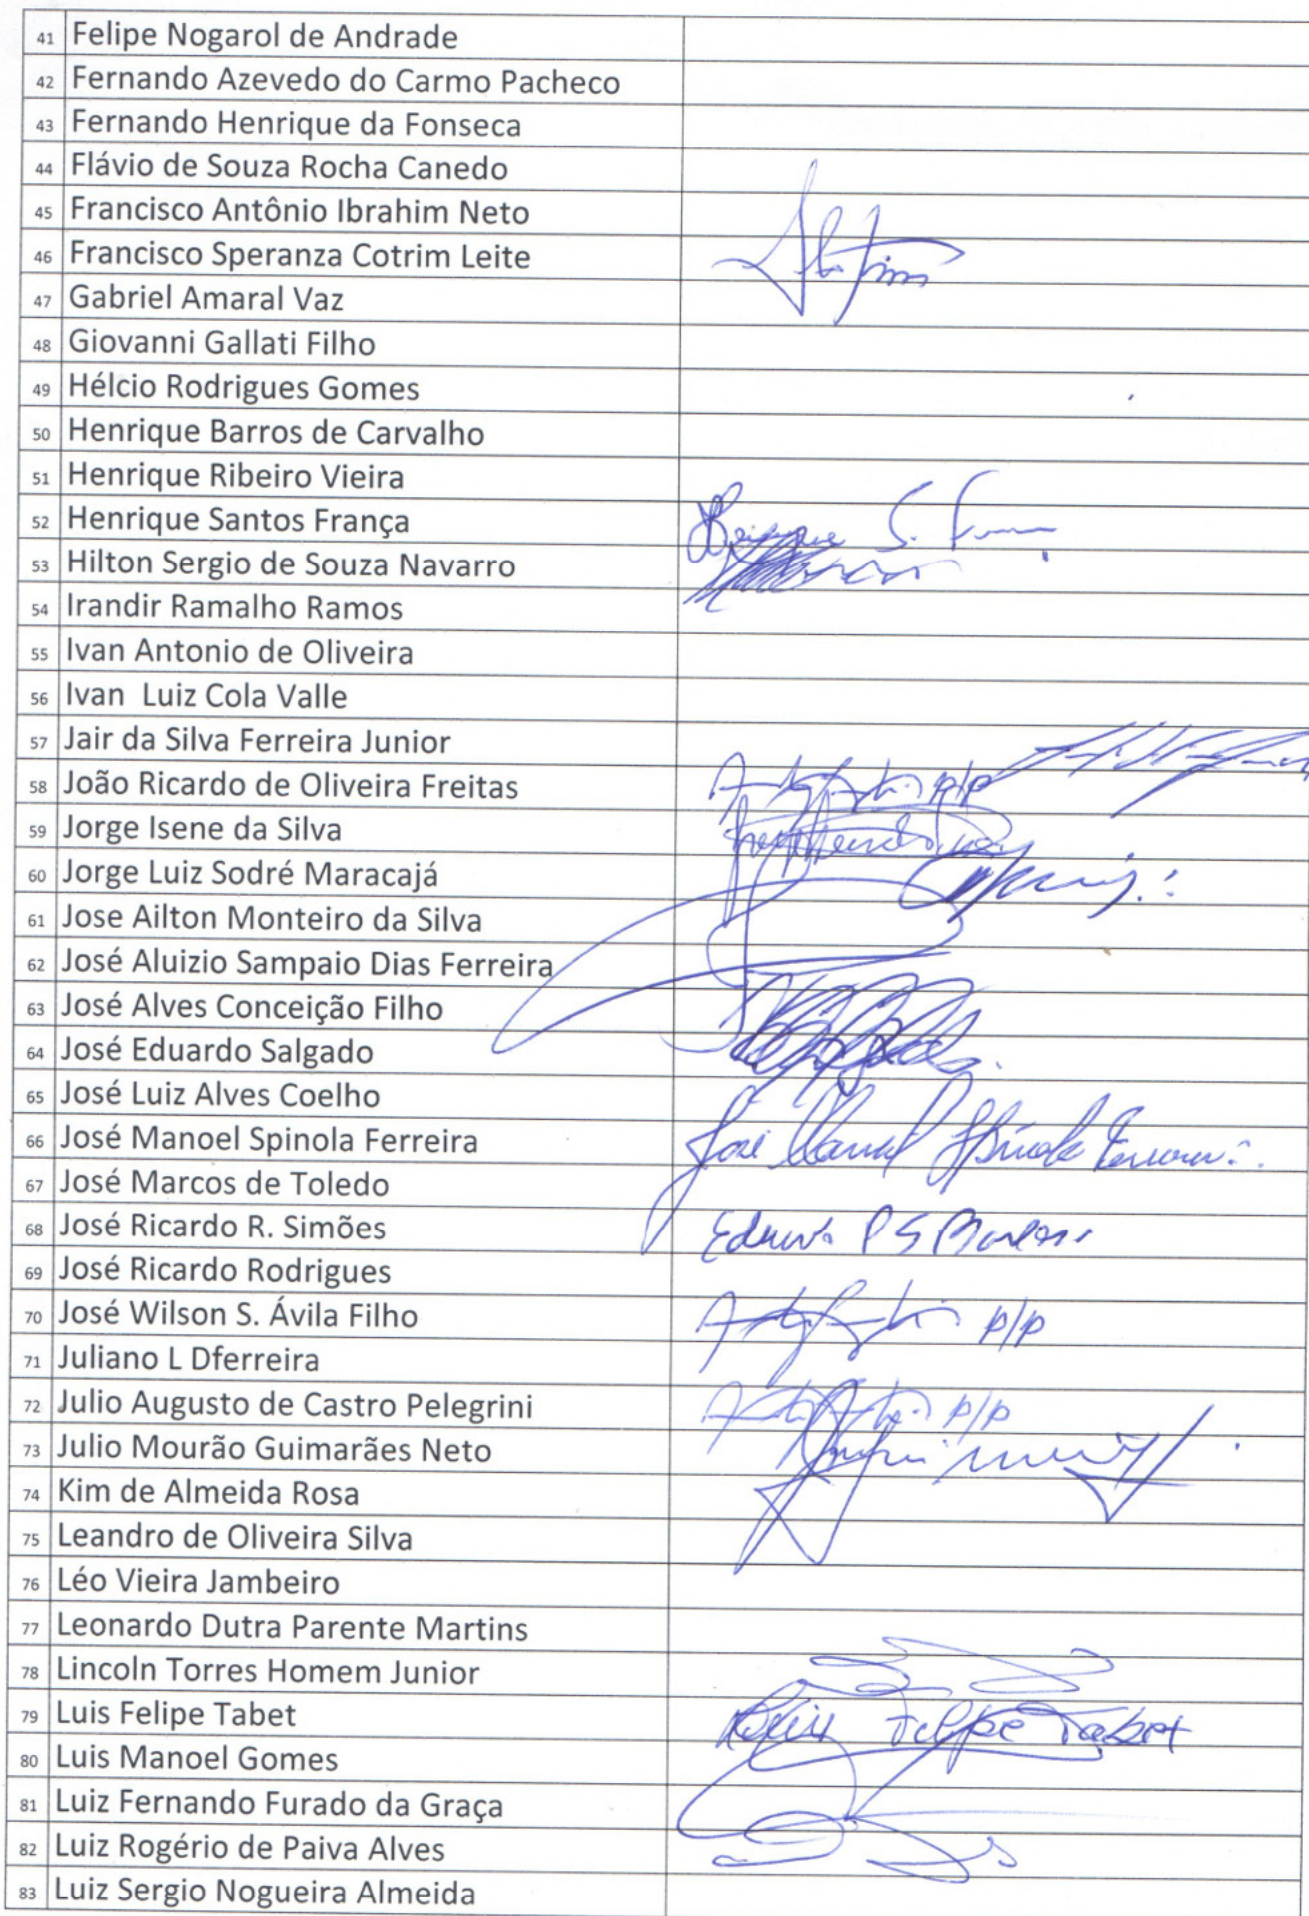 41 Felipe Nogarol de Andrade
42 Fernando Azevedo do Carmo Pacheco
43 Fernando Henrique da Fonseca
44 Flávio de Souza Rocha Canedo
45 Francisco Antônio Ibrahim Neto
46 Francisco Speranza Cotrim Leite
47 Gabriel Amaral Vaz
48 Giovanni Gallati Filho
49 Hélcio Rodrigues Gomes
50 Henrique Barros de Carvalho
51 Henrique Ribeiro Vieira
52 Henrique Santos França
53 Hilton Sergio de Souza Navarro
54 Irandir Ramalho Ramos
55 Ivan Antonio de Oliveira
56 Ivan Luiz Cola Valle
57 Jair da Silva Ferreira Junior
58 João Ricardo de Oliveira Freitas p/p
59 Jorge Isene da Silva
60 Jorge Luiz Sodré Maracajá
61 Jose Ailton Monteiro da Silva
62 José Aluizio Sampaio Dias Ferreira
63 José Alves Conceição Filho
64 José Eduardo Salgado
65 José Luiz Alves Coelho
66 José Manoel Spinola Ferreira José Manoel Spinola Ferreira
67 José Marcos de Toledo
68 José Ricardo R. Simões
69 José Ricardo Rodrigues
70 José Wilson S. Ávila Filho p/p
71 Juliano L Dferreira
72 Julio Augusto de Castro Pelegrini p/p
73 Julio Mourão Guimarães Neto
74 Kim de Almeida Rosa
75 Leandro de Oliveira Silva
76 Léo Vieira Jambeiro
77 Leonardo Dutra Parente Martins
78 Lincoln Torres Homem Junior
79 Luis Felipe Tabet Luis Felipe Tabet
80 Luis Manoel Gomes
81 Luiz Fernando Furado da Graça
82 Luiz Rogério de Paiva Alves
83 Luiz Sergio Nogueira Almeida